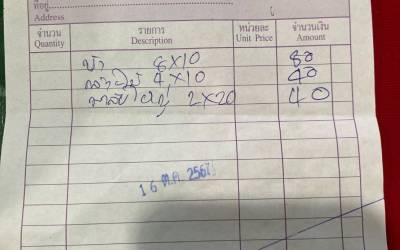 ที่อยู่
Address
จำนวน รายการ หน่วยละ จำนวนเงิน
Quantity Description Unit Price Amount
8×10 80
4×10 40
ใหญ่ 2×20 40
16 ต.ค. 256